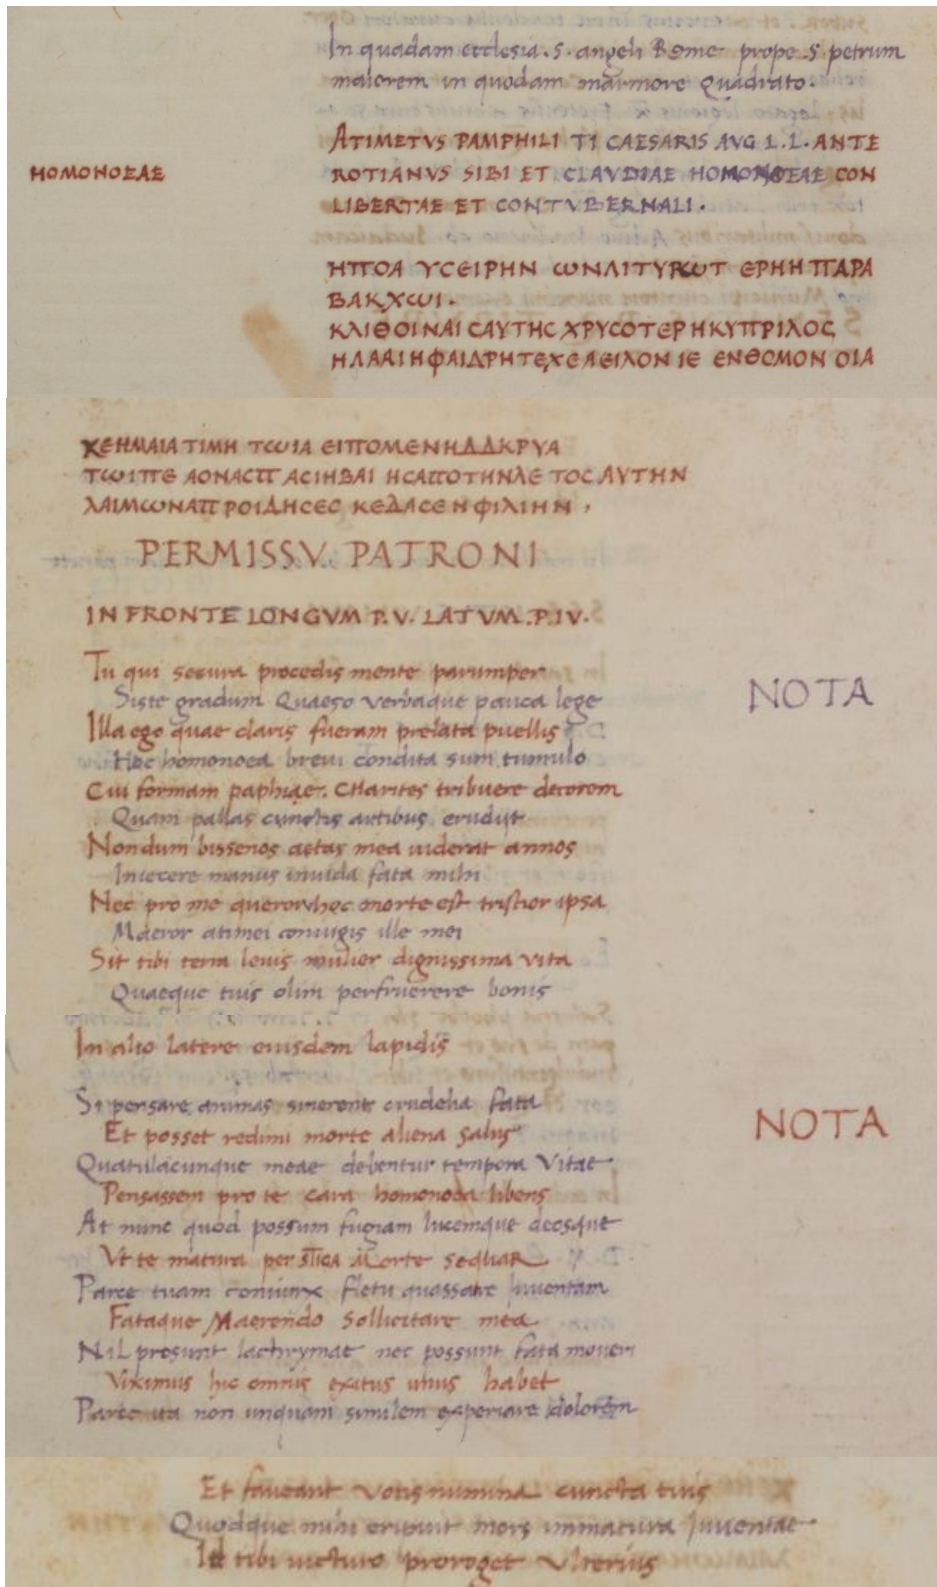 In quadam ecclesia . S . angeli Rome prope . S . petrum
maiorem in quodam marmore Quadrato .
ATIMETVS PAMPHILI TI CAESARIS AVG L . L . ANTE
HOMONOEAE
ROTIANVS SIBI ET CLAVDIAE HOMONOEAE CON
LIBERTAE ET CONTVBERNALI .
ΗΠΟΑ ΥCΕΙΡΗΝ ωΝΛΙΤΥΡωΤ ΕΡΗΗ ΠΑΡΑ
ΒΑΚΧωΙ .
ΚΛΙΘΟΙΝΑΙCΑΥΤΗC ΧΡΥCΟΤΕΡΗΚΥΠΡΙΛΟC
ΗΛΑΑΙΗΦΑΙΔΡΗΤΕΧΕΛΕΙΛΟΝ ΙΕ ΕΝΘΟΜΟΝ ΟΙΑ
ΧΕΗΜΑΙΑ ΤΙΜΗ ΤωΙΑ ΕΙΠΟΜΕΝΗΔΔΚΡΥΑ
ΤωΙΠΕ ΑΟΝΑCΠ ΑCΙΗΒΑΙ ΗCΑΠΟΤΗΝΛΕ ΤΟC ΑΥΤΗΝ
ΛΑΙΜωΝΑΠ ΡΟΙΔΗCΕC ΚΕΔΑCΕ Η ΦΙΛΙΗΝ ,
PERMISSV . PATRONI
IN FRONTE LONGVM P . V . LATVM . P . IV .
Tu qui secura procedis mente parumper
Siste gradum Quaeso verbaque pauca lege
NOTA
Illa ego quae claris fueram prelata puellis
Hoc homonoea brevi condita sum tumulo
Cui formam paphiae . CHarites tribuere decorem
Quam pallas cunctis artibus erudijt
Nondum bissenos aetas mea uiderat annos
Iniecere manus inuida fata mihi
Nec pro me queror hoc morte est tristior ipsa
Maeror atimei coniugis ille mei
Sit tibi terra leuis mulier dignissima vita
Quaeque tuis olim perfruerere bonis
In alio latere eiusdem lapidis
Si pensare animas sinerent crudelia fata
Et posset redimi morte aliena salus
NOTA
Quatulacunque meae debentur tempora Vitae
Pensassem pro te cara homonoea libens
At nunc quod possum fugiam lucemque deosque
Vt te matura per STIGA Morte sequaR
Parce tuam coniunx fletu quassare Iuuentam
Fataque Maerendo Sollicitare mea
NiL prosunt lachrymae nec possunt fata moueri
Viximus hic omnis exitus unus habet
Parce ita non unquam similem experiare dolorem
Et faueant Votis numina cuncta tuis
Quodque mihi eripuit mors immatura Iuuentae
Id tibi uicturo proroget Vlterius